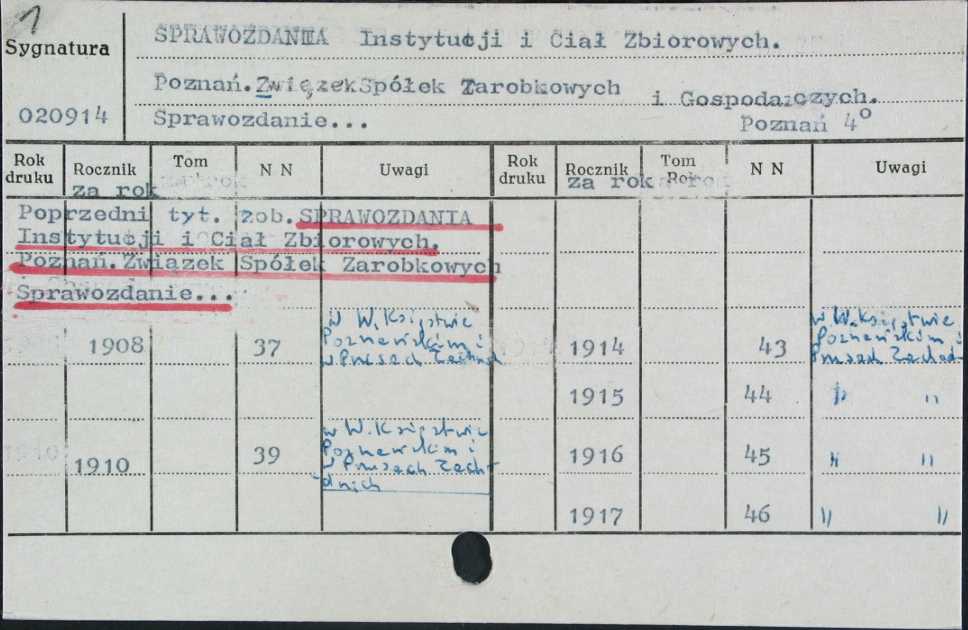 1
Sygnatura
SPRAWOZDANIA Instytucji i Ciał Zbiorowych.
Poznań. Związek Spółek Zarobkowych i Gospodarczych.
020914
Sprawozdanie... Poznań 4º
Rok druku Rocznik Tom N N Uwagi Rok druku Rocznik Tom N N Uwagi
za rok za rok
Poprzedni tyt. zob. SPRAWOZDANIA
Instytucji i Ciał Zbiorowych.
Poznań. Związek Spółek Zarobkowych
Sprawozdanie...
1908 37 w W. Księstwie
Poznańskim i
w Prusach Zachod
1910 39 w W. Księstwie
Poznańskim i
w Prusach Zach-
dnich
1914 43 w W. Księstwie
Poznańskim i
Prusach Zachod-
1915 44 " "
1916 45 " "
1917 46 " "